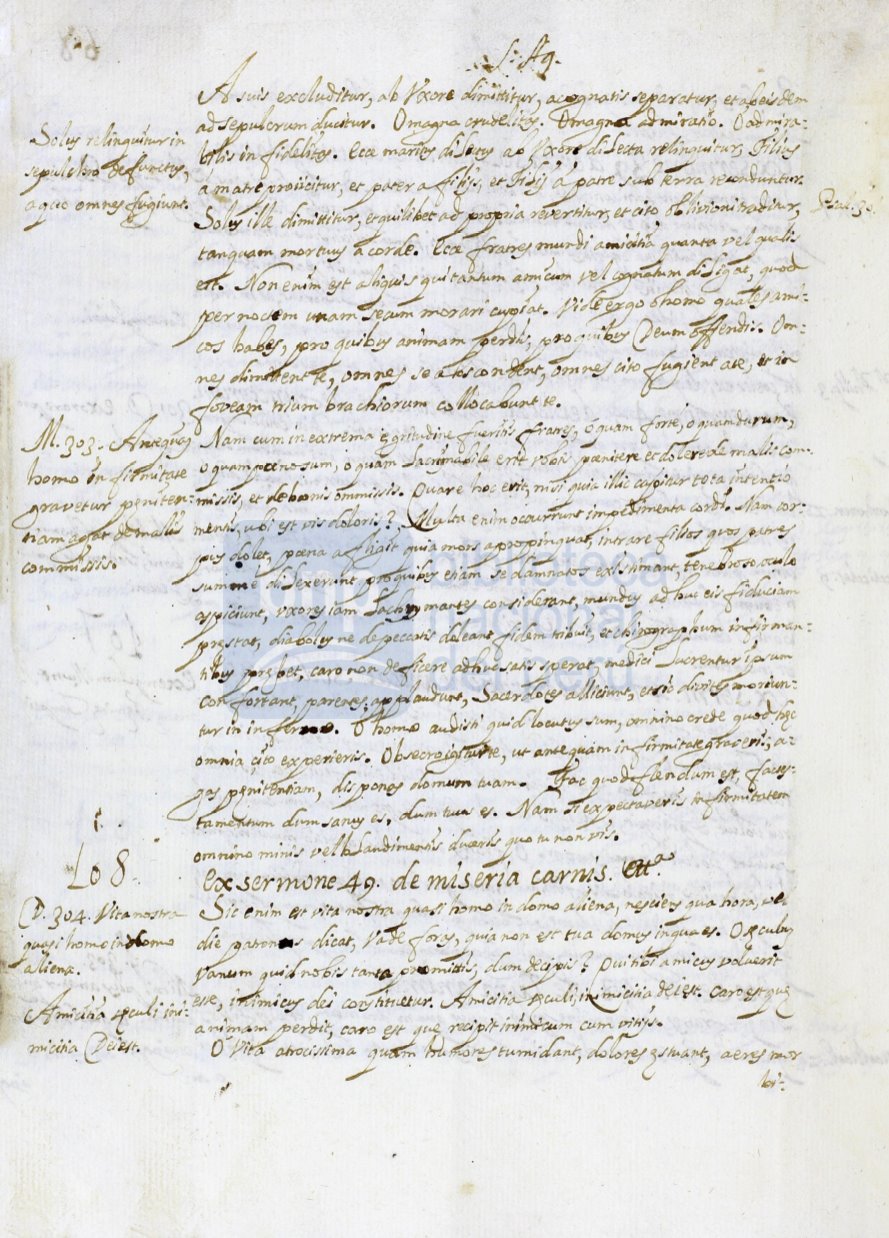 S. 49.
A suis excluditur, ab Vxore dimittitur, a cognatis separatur, et ab eisdem
ad sepulcrum ducitur. O magna crudelitas. O magna admiratio. O admira-
bilis infidelitas. Ecce maritus dilectus ab Vxore dilecta relinquitur, Filius
á matre proiicitur, et pater a filijs, et Filij á patre sub terra reconduntur.
Solus ille dimittitur, et quilibet ad propria revertitur, et cito oblivioni traditur,
tanquam mortuus a corde. Ecce fratres mundi amicitia quanta vel qualis
est. Non enim est aliquis qui tantum amicum vel cognatum diligat, quod
per noctem unam secum morari cupiat. Vide ergo ó homo quales ami-
cos habes, pro quibus animam perdis, pro quibus Deum offendis. Om-
nes dimittent te, omnes se abscondent, omnes cito fugient a te, et in
foveam trium brachiorum collocabunt te.
Solus relinquitur in
sepulchro defunctus,
a quo omnes fugiunt.
Psal. 30
Nam cum in extrema egritudine fueritis fratres, o quam forte, o quam durum,
o quam poenosum, o quam lacrimabile erit vobis poenitere et dolere de malis com-
missis, et de bonis ommissis. Quare hoc erit, nisi quia illic cupitur tota intentio
mentis, ubi est vis doloris? Multa enim occurrunt impedimenta cordis. Nam cor-
pus dolet, poena affligit quia mors apropinquat, intrare filios quos patres
summe dilexerunt, pro quibus etiam se damnatos existimant, tenebroso oculo
aspiciunt, vxores iam lachrymantes considerant, mundus adhuc eis fiduciam
prestat, diabolus ne de peccatis doleant fidem tribuit, et chirographum infirman-
tibus prebet, caro non deficere adhuc satis sperat, medici lucrentur ipsum
confortant, parentes applaudunt, Sacerdotes alliciunt, et sic divites moriun-
tur in inferno. O homo audisti quid locutus sum, omnino crede quod hec
omnia cito experieris. Obsecro igitur te, ut antequam infirmitate graveris, a-
gas penitentiam, dispones domum tuam. Fac quod flendum est, fac tes-
tamentum dum sanus es, dum tuus es. Nam si expectaveris infirmitatem
omnino minis vel blandimentis duceris quo tu non vis.
M. 303. Antequam
homo infirmitate
gravetur peniten-
tiam agat de malis
commissis.
Lo 8.
Ex sermone 49. de miseria carnis. Etta
Sic enim est vita nostra quasi homo in domo aliena, nesciens qua hora, vel
die patronus dicat, vade foras, quia non est tua domus in qua es. O seculum
vanum quid nobis tanta promittis, dum decipis? Qui tibi amicus voluerit
esse, inimicus dei constituetur. Amicitia seculi, inimicitia dei est. Caro est que
animam perdit, caro est que recipit inimicum cum vitijs.
O Vita atrocissima quam humores tumidant, dolores estuant, aeres mor
bi-
D. 304. Vita nostra
quasi homo in domo
aliena.
Amicitia seculi ini-
micitia Dei est.